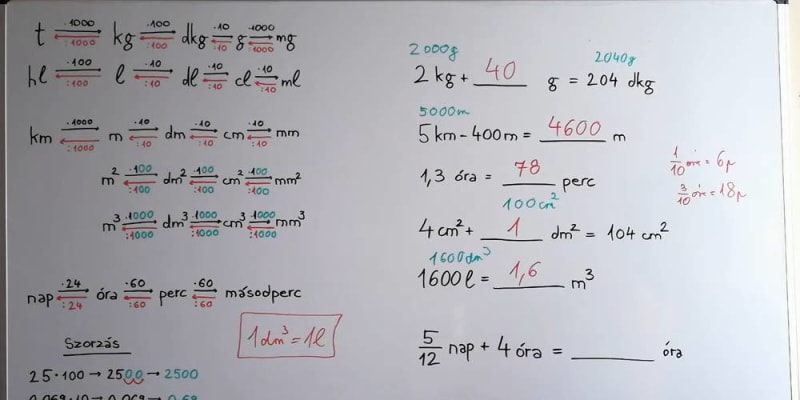 t ·1000 :1000 kg ·100 :100 dkg ·10 :10 g ·1000 :1000 mg
hl ·100 :100 l ·10 :10 dl ·10 :10 cl ·10 :10 ml
km ·1000 :1000 m ·10 :10 dm ·10 :10 cm ·10 :10 mm
m² ·100 :100 dm² ·100 :100 cm² ·100 :100 mm²
m³ ·1000 :1000 dm³ ·1000 :1000 cm³ ·1000 :1000 mm³
nap ·24 :24 óra ·60 :60 perc ·60 :60 másodperc
1 dm³ = 1 l
Szorzás
25·100 → 2500 → 2500
2000g 2040g
2 kg + 40 g = 204 dkg
5000m
5 km - 400 m = 4600 m
1,3 óra = 78 perc
1/10 óra = 6p
3/10 óra = 18p
100 cm²
4 cm² + 1 dm² = 104 cm²
1600 dm³
1600 l = 1,6 m³
5/12 nap + 4 óra = ______ óra